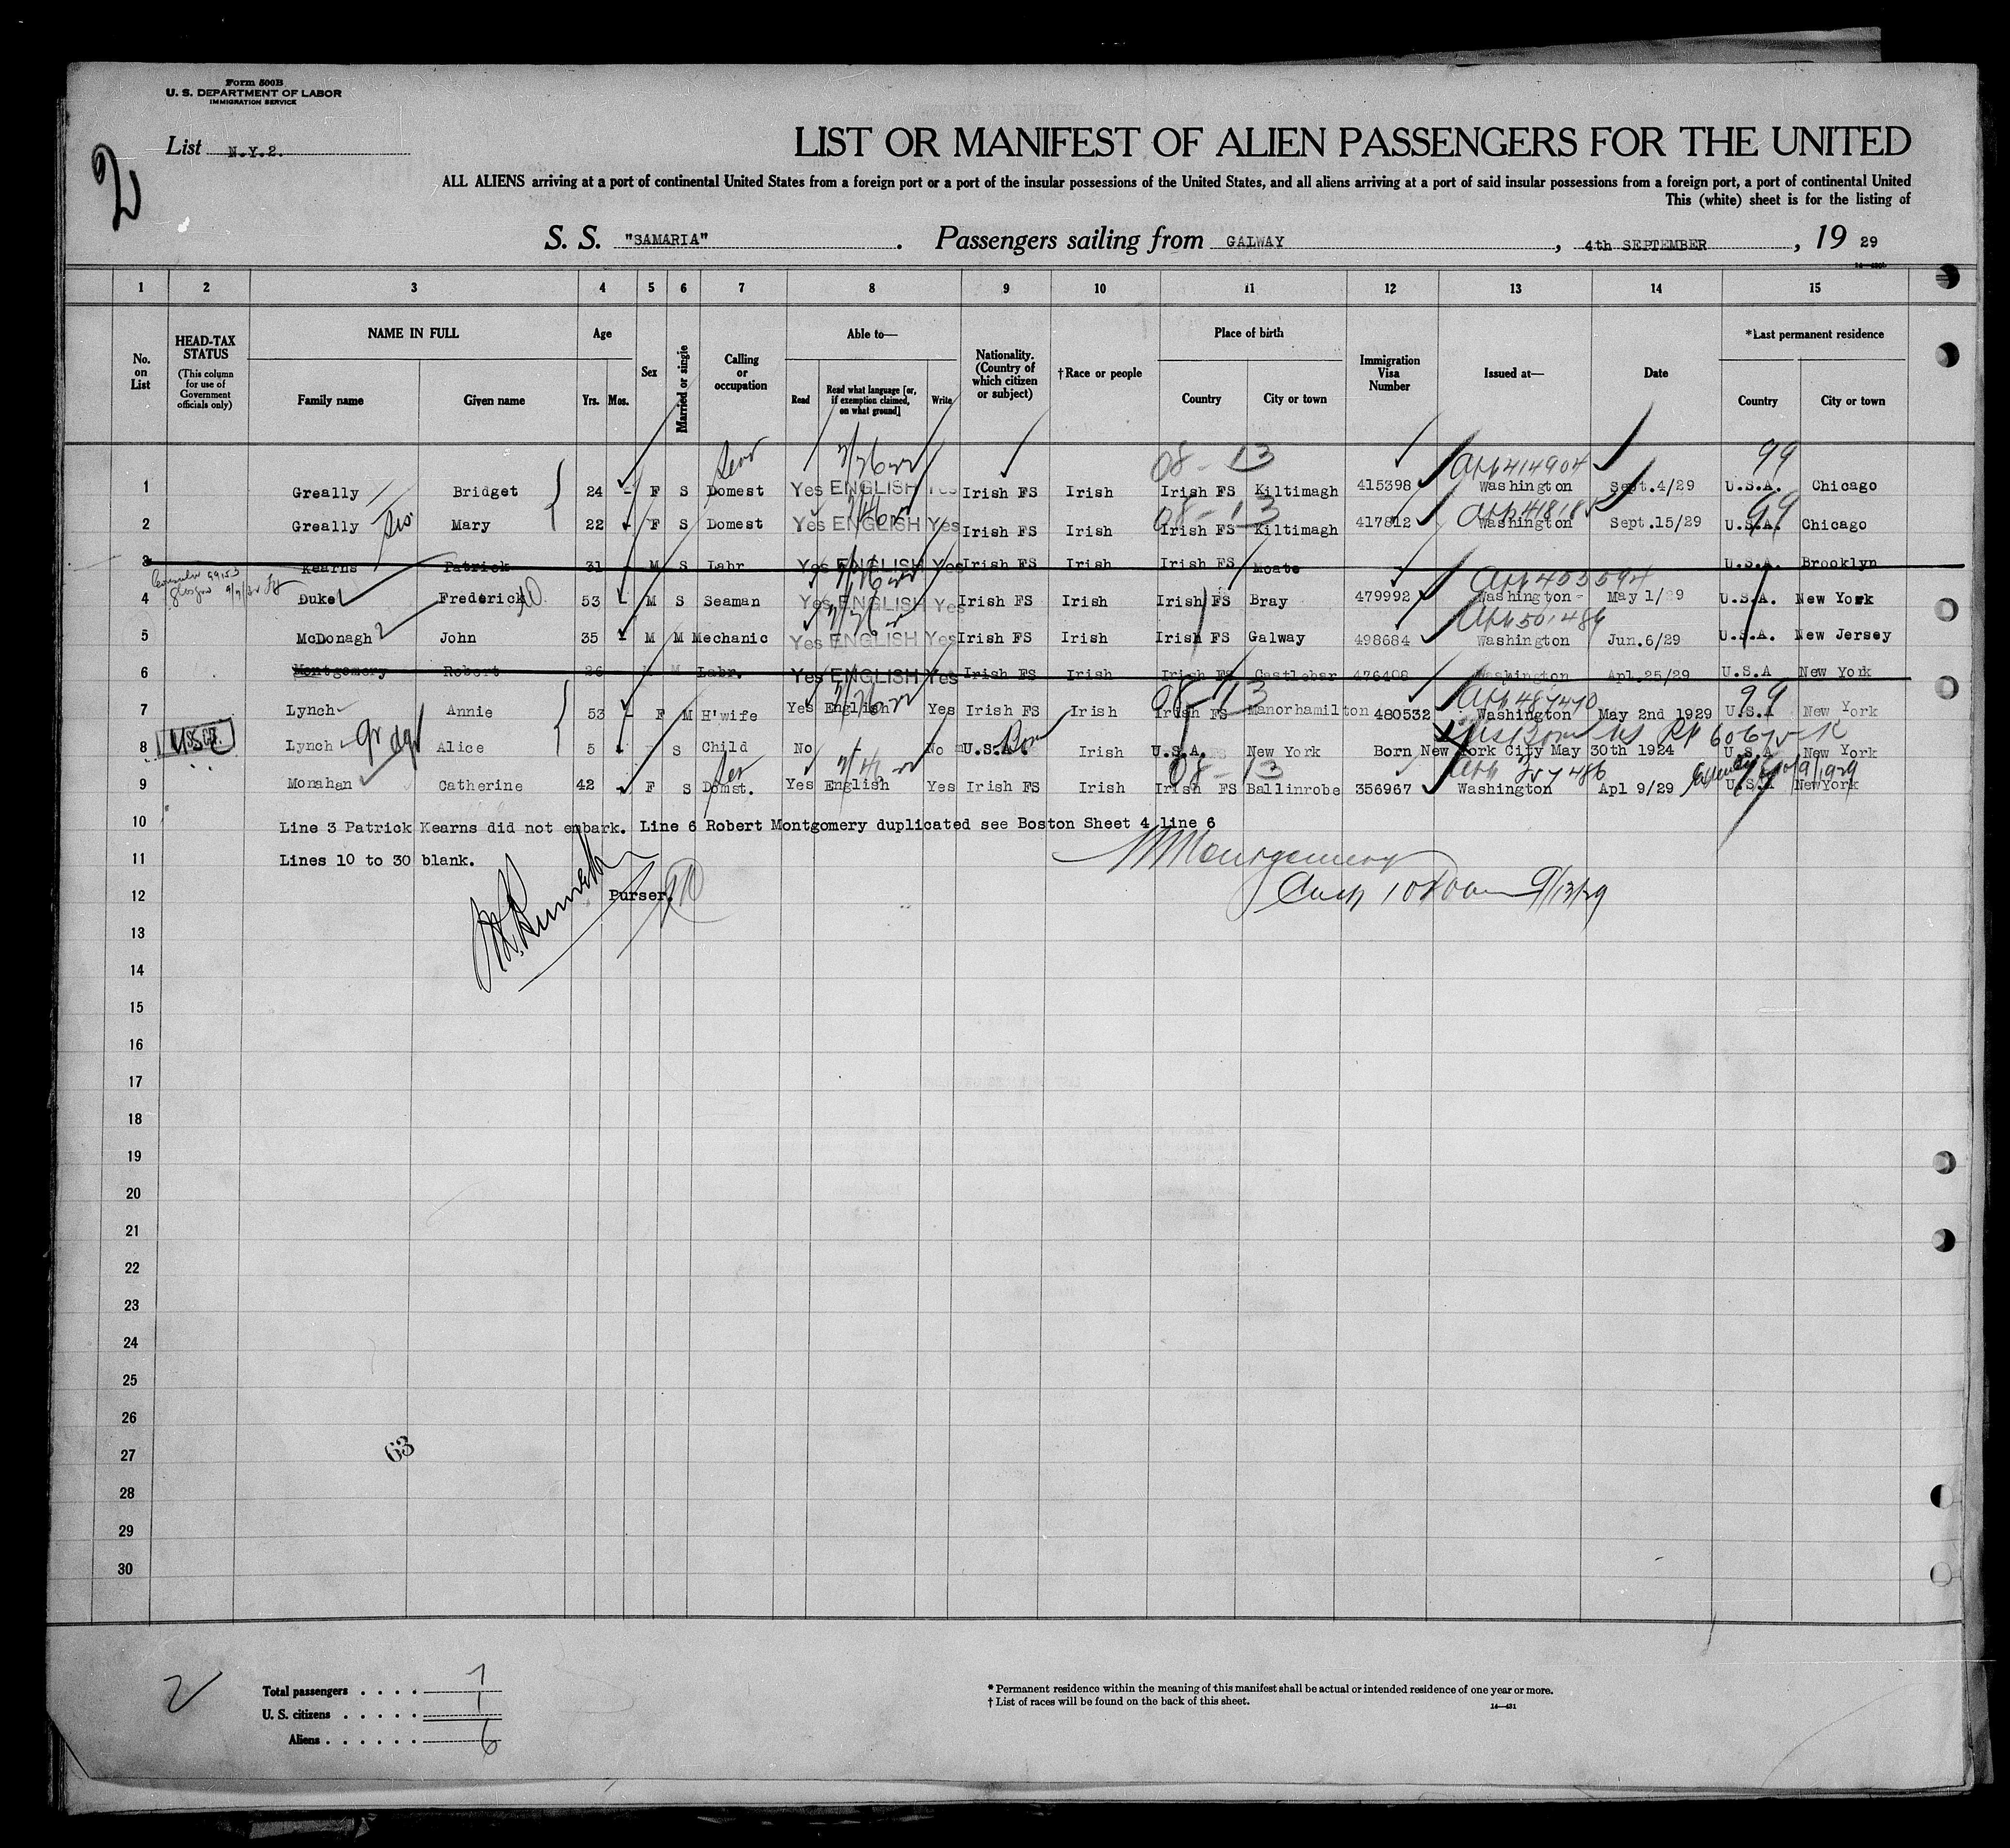 Form 500B
U. S. DEPARTMENT OF LABOR
IMMIGRATION SERVICE
2
List N.Y.2.
LIST OR MANIFEST OF ALIEN PASSENGERS FOR THE UNITED
ALL ALIENS arriving at a port of continental United States from a foreign port or a port of the insular possessions of the United States, and all aliens arriving at a port of said insular possessions from a foreign port, a port of continental United
This (white) sheet is for the listing of
S. S. "SAMARIA" . Passengers sailing from GALWAY , 4th SEPTEMBER , 19 29
1 2 3 4 5 6 7 8 9 10 11 12 13 14 15
No. on List
HEAD-TAX STATUS (This column for use of Government officials only)
NAME IN FULL
Family name Given name
Age
Yrs. Mos.
Sex
Married or single
Calling or occupation
Able to—
Read Read what language [or, if exemption claimed, on what ground] Write
Nationality. (Country of which citizen or subject)
†Race or people
Place of birth
Country City or town
Immigration Visa Number
Issued at—
Date
*Last permanent residence
Country City or town
08-13 99
1 Greally Bridget 24 - F S Domest Yes ENGLISH Yes Irish FS Irish Irish FS Kiltimagh 415398 Washington Sept.4/29 U.S.A. Chicago
08-13 99
2 Greally Sis. Mary 22 F S Domest Yes ENGLISH Yes Irish FS Irish Irish FS Kiltimagh 417812 Washington Sept.15/29 U.S.A. Chicago
3 Kearns Patrick 31 - M S Labr Yes ENGLISH Yes Irish FS Irish Irish FS Moate U.S.A. Brooklyn
4 Duke Frederick 53 - M S Seaman Yes ENGLISH Yes Irish FS Irish Irish FS Bray 479992 Washington - May 1/29 U.S.A. New York
5 McDonagh John 35 - M M Mechanic Yes ENGLISH Yes Irish FS Irish Irish FS Galway 498684 Washington Jun.6/29 U.S.A. New Jersey
6 Montgomery Robert 26 M M Labr. Yes ENGLISH Yes Irish FS Irish Irish FS Castlebar 476408 Washington Apl.25/29 U.S.A New York
08-13 99
7 Lynch Annie 53 - F M H'wife Yes English Yes Irish FS Irish Irish FS Manorhamilton 480532 Washington May 2nd 1929 U.S.A New York
8 USC Lynch gr dgr Alice 5 S Child No - No U.S.A. Born Irish U.S.A. New York Born New York City May 30th 1924 U.S.A. New York
08-13
9 Monahan Catherine 42 - F S Domst. Yes English Yes Irish FS Irish Irish FS Ballinrobe 356967 Washington Apl 9/29 U.S.A NewYork
10 Line 3 Patrick Kearns did not enbark. Line 6 Robert Montgomery duplicated see Boston Sheet 4 line 6
11 Lines 10 to 30 blank.
12 Purser.
13
14
15
16
17
18
19
20
21
22
23
24
25
26
27
63
28
29
30
2
Total passengers . . . . 7
U. S. citizens . . . . . 1
Aliens . . . . . . 6
* Permanent residence within the meaning of this manifest shall be actual or intended residence of one year or more.
† List of races will be found on the back of this sheet.
14—431